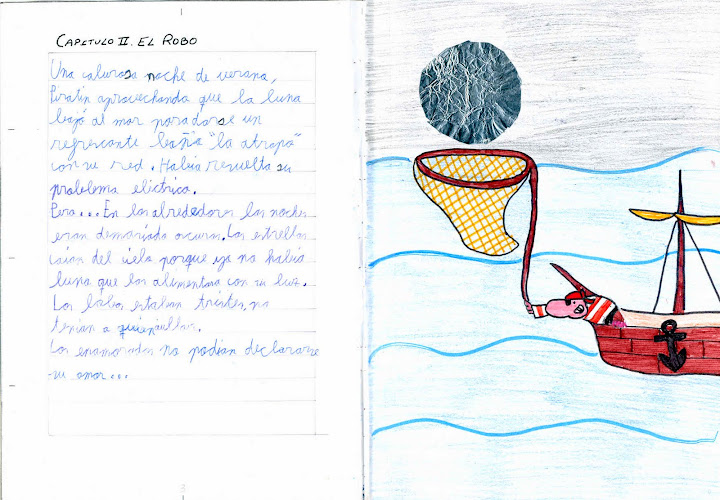 CAPITULO II. EL ROBO
Una calurosa noche de verano,
Piratín aprovechando que la luna
bajó al mar para darse un
refrescante baño "la atrapó"
con su red. Había resuelto su
problema eléctrico.
Pero... En los alrededores las noches
eran demasiado oscuras. Las estrellas
caían del cielo porque ya no había
luna que las alimentara con su luz.
Los lobos estaban tristes, no
tenían a quien aullar.
Los enamorados no podían declararse
su amor...
3